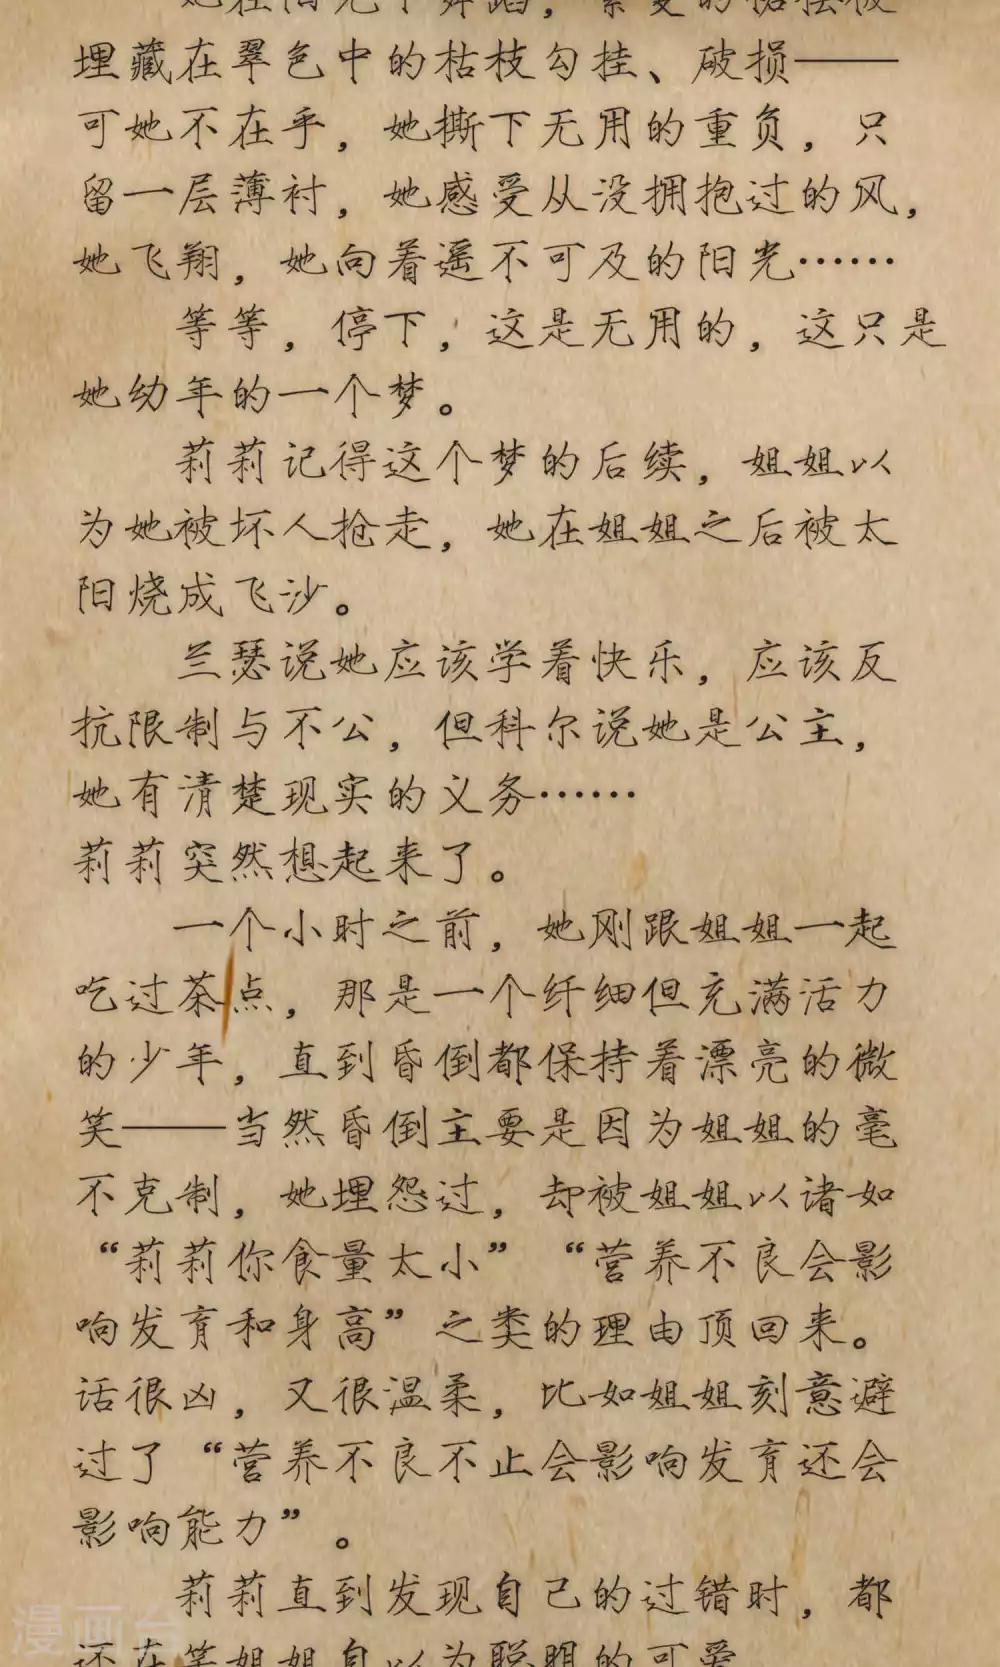 她在阳光下舞蹈，繁复的裙摆被
埋藏在翠色中的枯枝勾挂、破损——
可她不在乎，她撕下无用的重负，只
留一层薄衬，她感受从没拥抱过的风，
她飞翔，她向着遥不可及的阳光……
等等，停下，这是无用的，这只是
她幼年的一个梦。
莉莉记得这个梦的后续，姐姐以
为她被坏人抢走，她在姐姐之后被太
阳烧成飞沙。
兰瑟说她应该学着快乐，应该反
抗限制与不公，但科尔说她是公主，
她有清楚现实的义务……
莉莉突然想起来了。
一个小时之前，她刚跟姐姐一起
吃过茶点，那是一个纤细但充满活力
的少年，直到昏倒都保持着漂亮的微
笑——当然昏倒主要是因为姐姐的毫
不克制，她埋怨过，却被姐姐以诸如
“莉莉你食量太小”“营养不良会影
响发育和身高”之类的理由顶回来。
话很凶，又很温柔，比如姐姐刻意避
过了“营养不良不止会影响发育还会
影响能力”。
莉莉直到发现自己的过错时，都
还在笑姐姐自以为聪明的可爱
漫画台